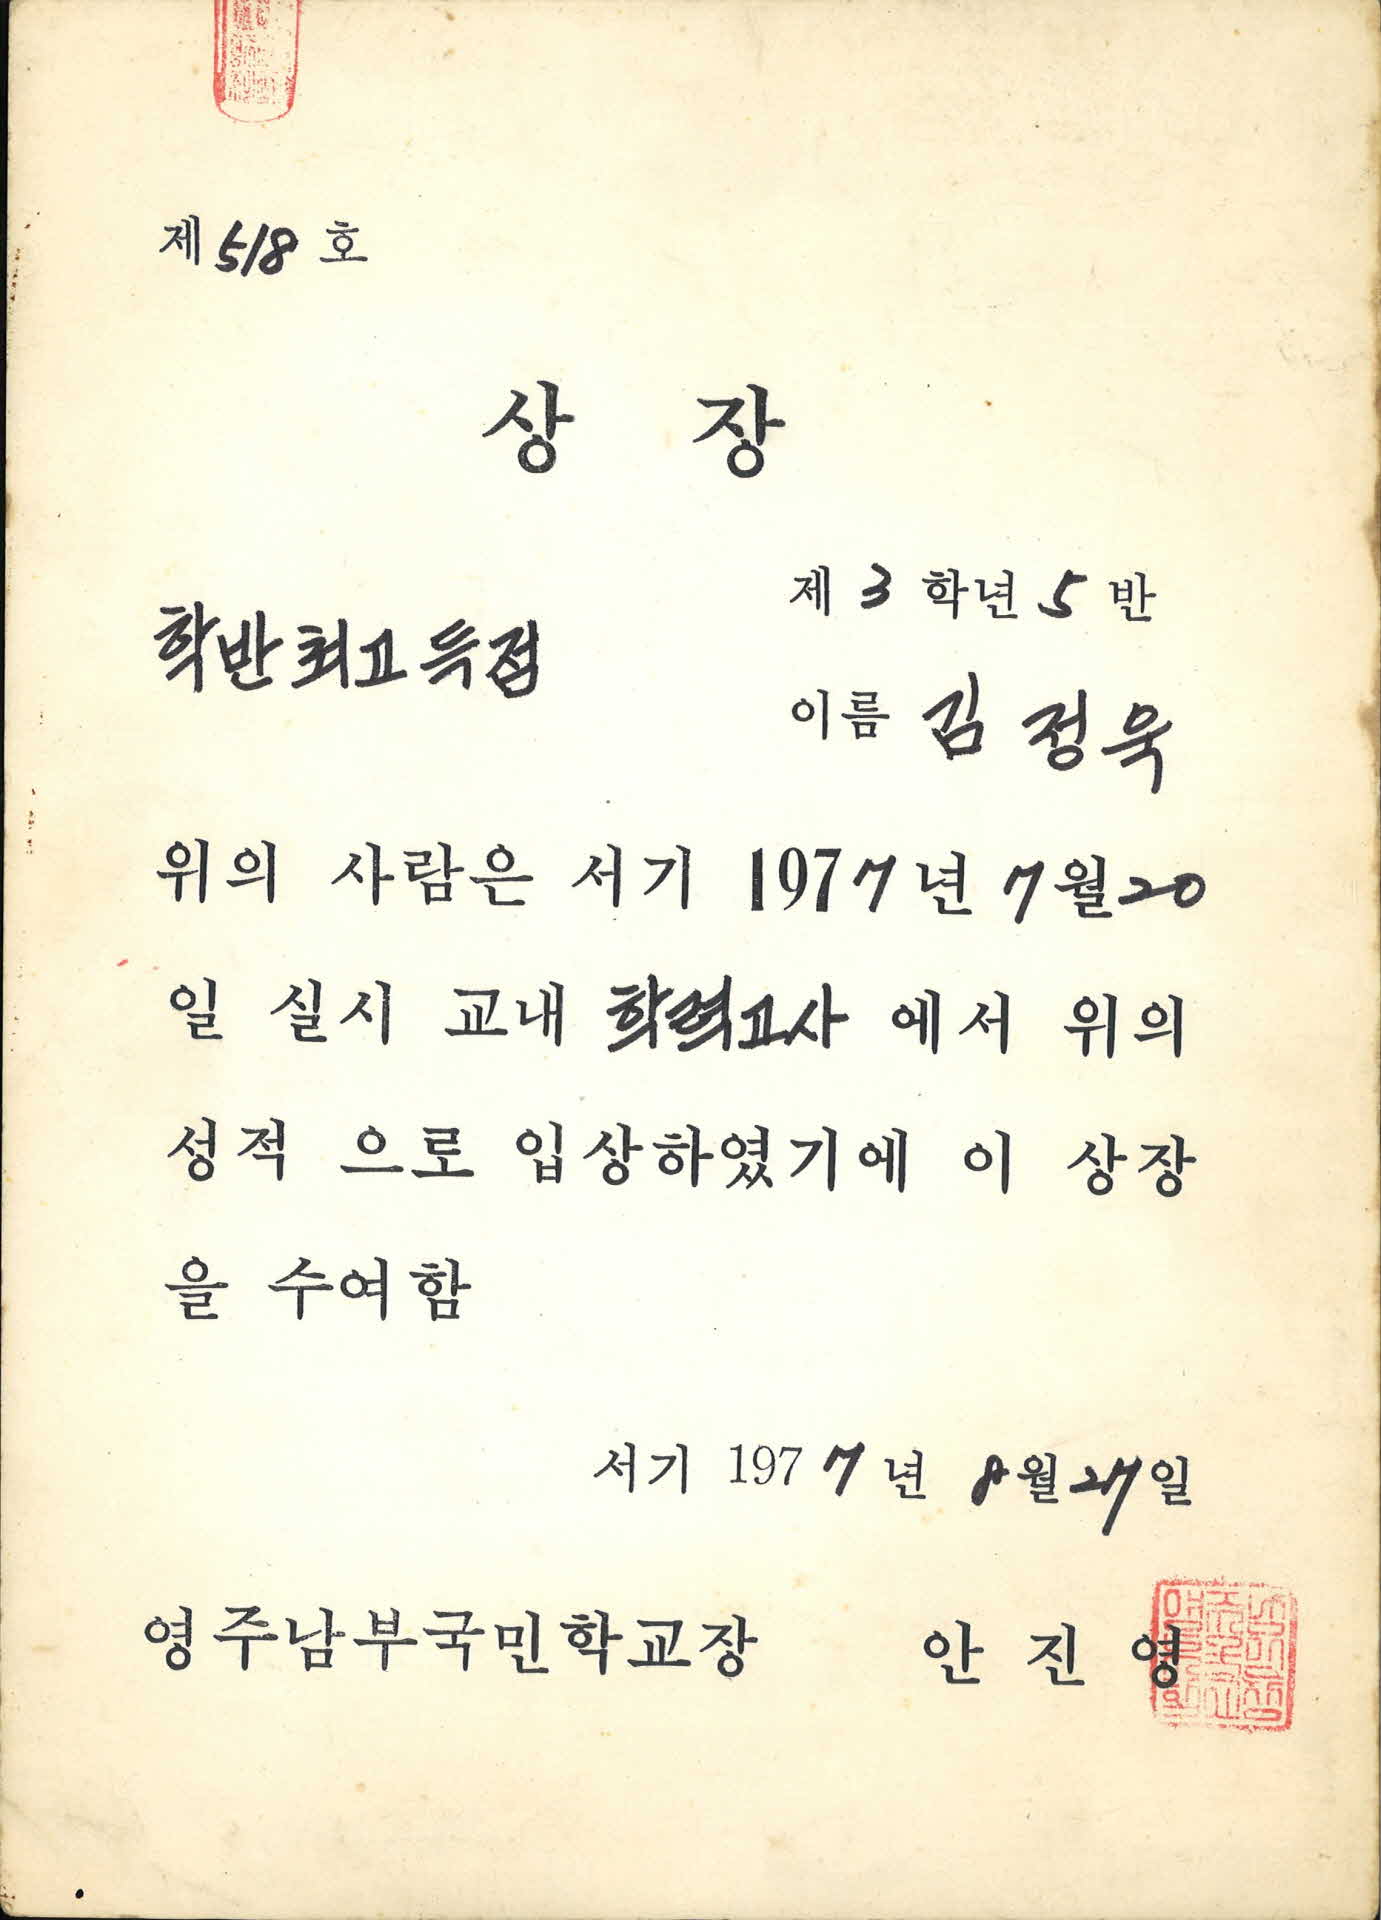 제 518 호
상 장
제 3 학년 5 반
학반최고득점
이름 김정욱
위의 사람은 서기 1977년 7월 20
일 실시 교내 학력고사 에서 위의
성적 으로 입상하였기에 이 상장
을 수여함
서기 1977년 8월 27일
영주남부국민학교장 안 진 영